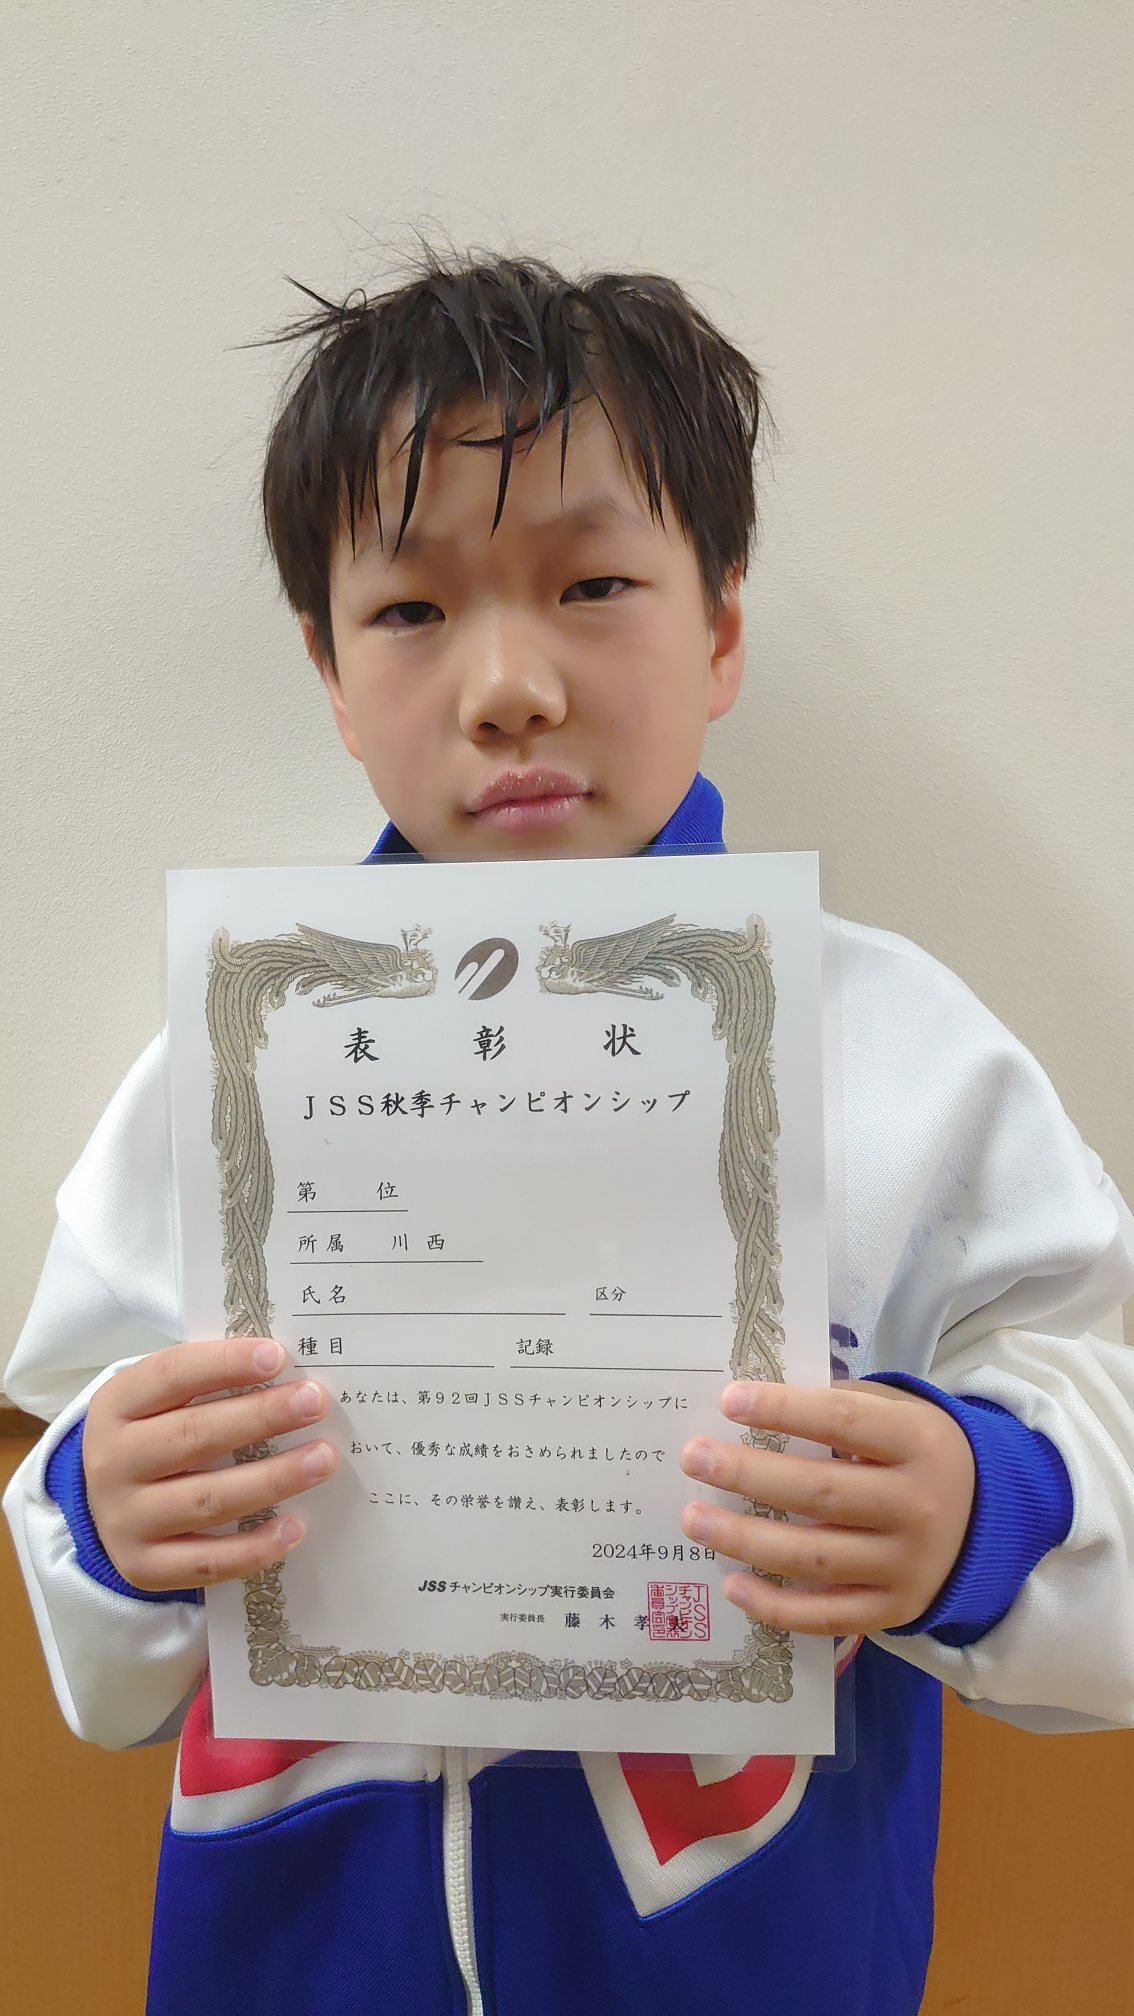 表彰状
JSS秋季チャンピオンシップ
第 位
所属 川西
氏名 区分
種目 記録
あなたは、第92回JSSチャンピオンシップに
おいて、優秀な成績をおさめられましたので
ここに、その栄誉を讃え、表彰します。
2024年9月8日
JSSチャンピオンシップ実行委員会
実行委員長 藤木孝
S